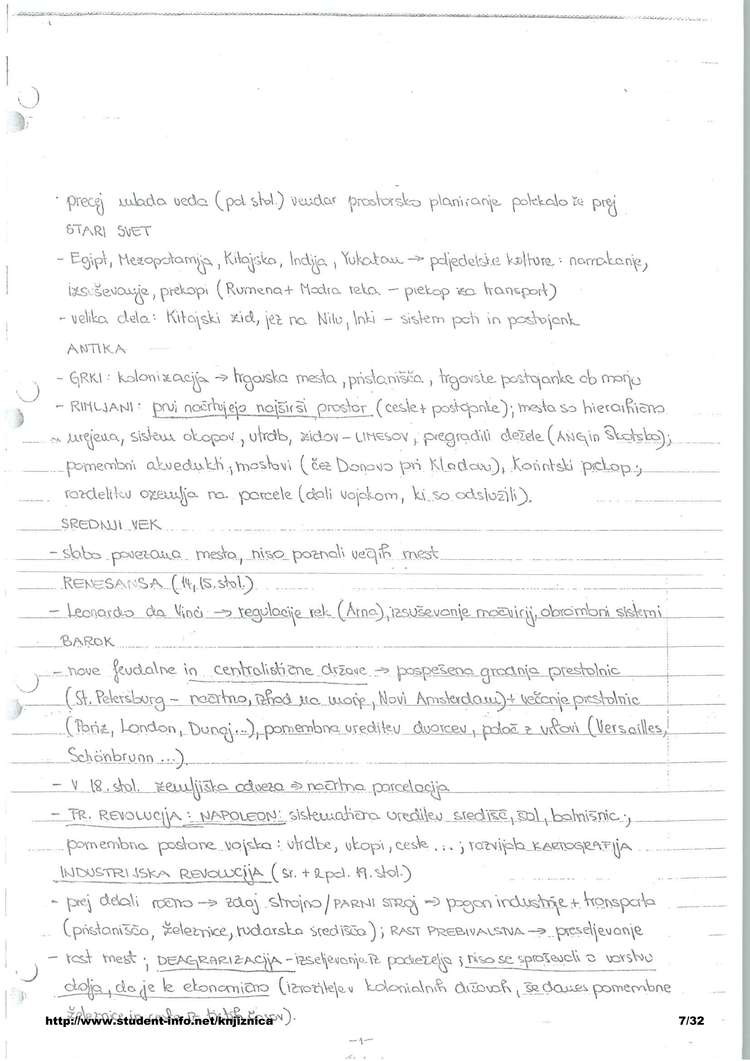 · precej mlada veda (pol stol.) vendar prostorsko planiranje potekalo že prej
STARI SVET
- Egipt, Mezopotamija, Kitajska, Indija, Yukatan → poljedelske kulture: namakanje,
izsuševanje, prekopi (Rumena + Modra reka - prekop za transport)
- velika dela: Kitajski zid, jez na Nilu, Inki - sistem poti in postojank
ANTIKA
- GRKI: kolonizacija → trgovska mesta, pristanišča, trgovske postojanke ob morju
- RIMLJANI: prvi načrtujejo najširši prostor (ceste + postojanke); mesta so hierarhično
urejena, sistem okopov, utrdb, zidov - LIMESOV, pregradili dežele (ANG in Škotsko);
pomembni akvedukti, mostovi (čez Donavo pri Kladovu), Korintski prekop;
razdelitev ozemlja na parcele (dali vojakom, ki so odslužili).
SREDNJI VEK
- slabo povezana mesta, niso poznali večjih mest
RENESANSA (14, 15. stol.)
- Leonardo da Vinci → regulacije rek (Arno), izsuševanje močvirij, obrambni sistemi
BAROK
- nove feudalne in centralistične države → pospešena gradnja prestolnic
(St. Petersburg - načrtno, izhod na morje, Novi Amsterdam) + večanje prestolnic
(Pariz, London, Dunaj...), pomembna ureditev dvorcev, palač z vrtovi (Versailles,
Schönbrunn ...)
- V 18. stol. zemljiška odveza ⇒ načrtna parcelacija
- FR. REVOLUCIJA: NAPOLEON: sistematična ureditev središč, šol, bolnišnic;
pomembna postane vojska: utrdbe, vkopi, ceste ...; razvijala KARTOGRAFIJA
INDUSTRIJSKA REVOLUCIJA (sr. + 2 pol. 19. stol.)
- prej delali ročno → zdaj strojno/PARNI STROJ → pogon industrije + transporta
(pristanišča, železnice, rudarska središča); RAST PREBIVALSTVA → preseljevanje
- rast mest; DEAGRARIZACIJA - izseljevanje iz podeželja; niso se spraševali o varstvu
okolja, da je le ekonomično (izrazitejše v kolonialnih državah, še danes pomembne
železnice in ceste iz tistih časov).
http://www.student-info.net/knjiznica
7/32
-1-